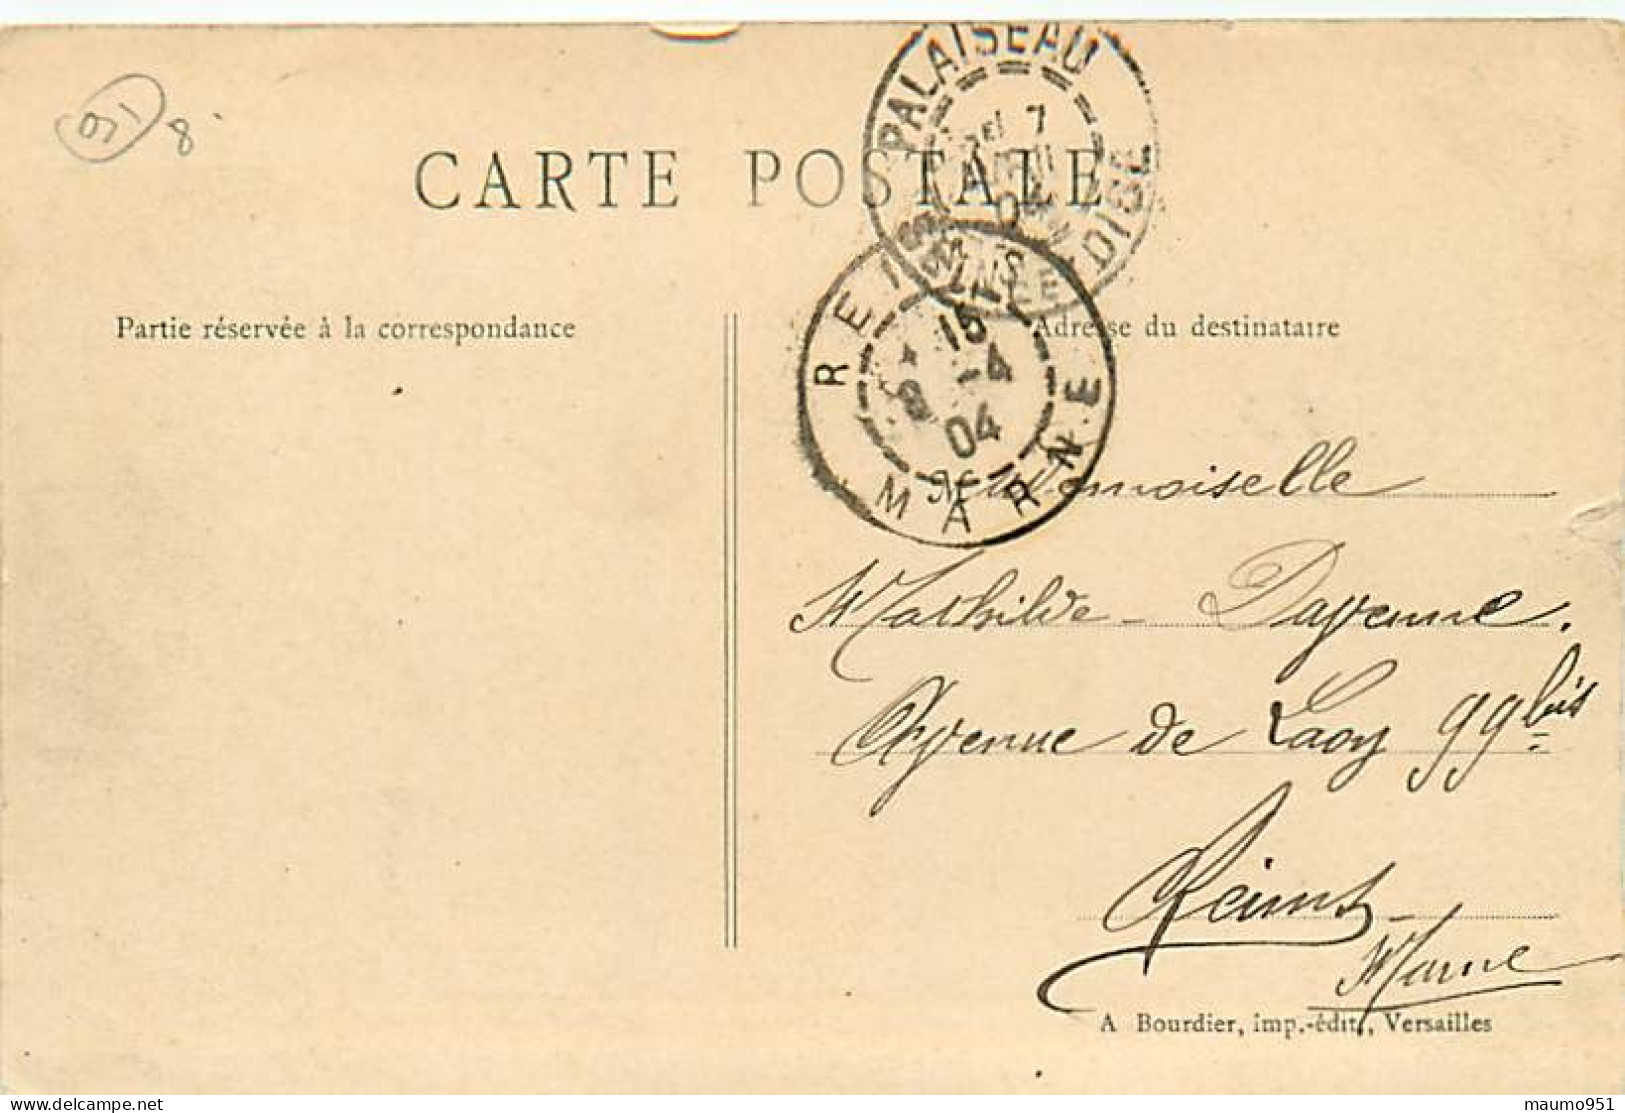 91
8
CARTE POSTALE
PALAISEAU
7
04
SEINE & OISE
REIMS
15
8 -4
04
MARNE
Partie réservée à la correspondance
Adresse du destinataire
Mademoiselle
Mathilde Dayenne.
Avenue de Laon 99 bis
Reims
Marne
A Bourdier, imp.-édit., Versailles
maumo951